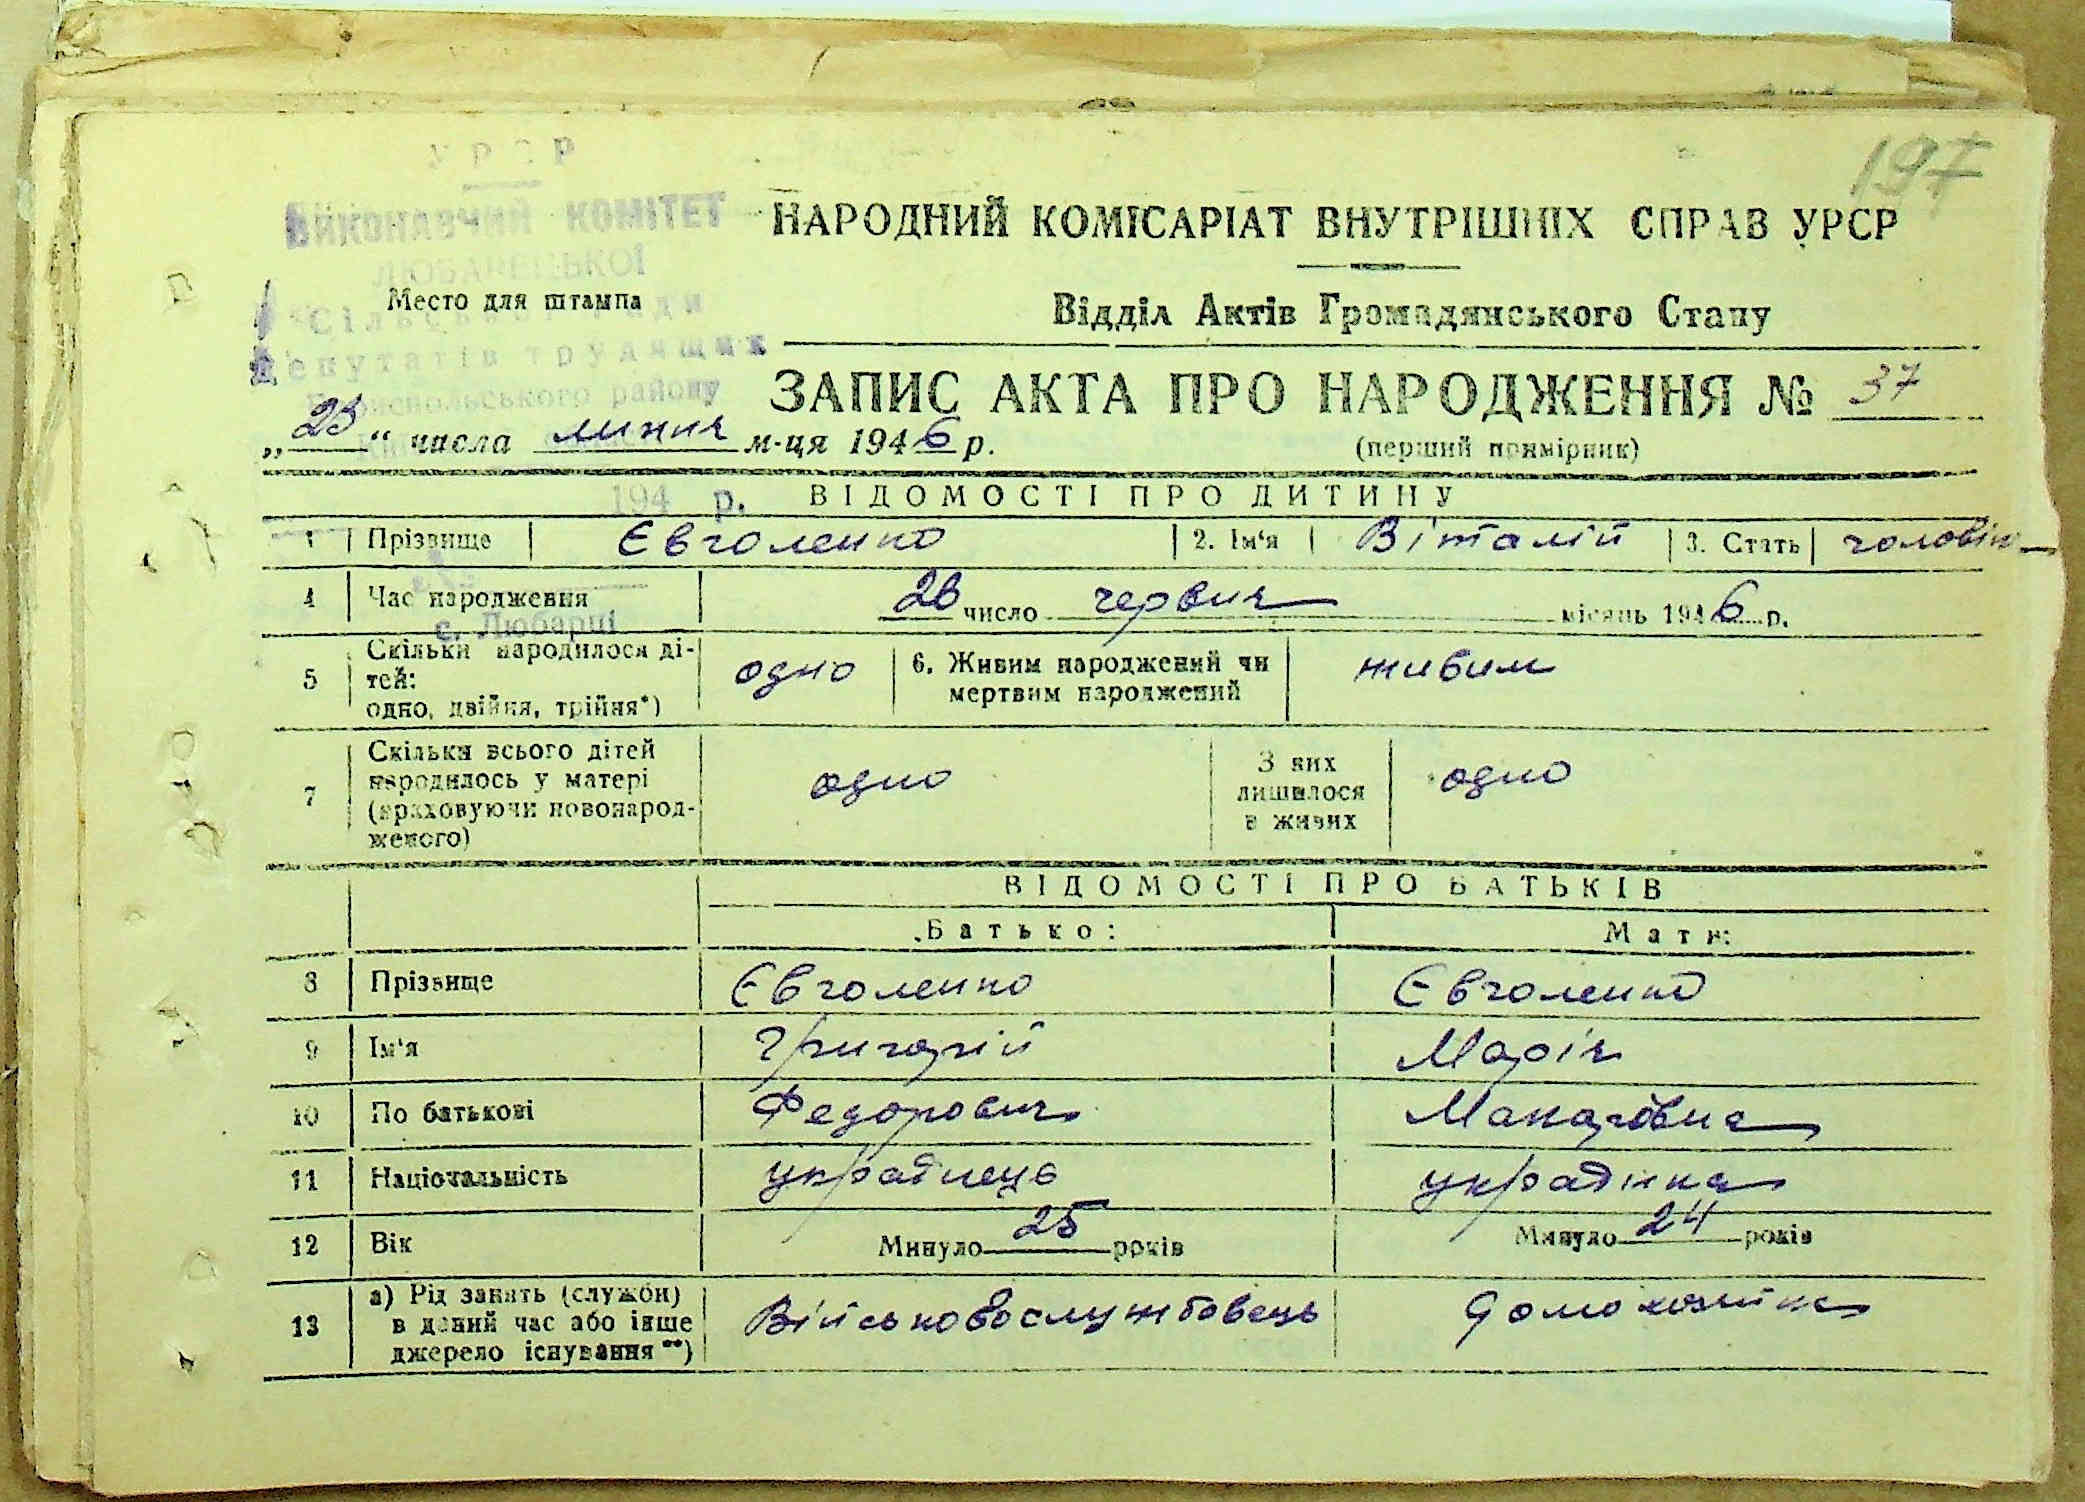 197
УРСР
ВИКОНАВЧИЙ КОМІТЕТ
ЛЮБАРЕЦЬКОЇ
Сільської Ради
Депутатів трудящих
Бориспольського району
194 р.
с. Любарці
НАРОДНИЙ КОМІСАРІАТ ВНУТРІШНІХ СПРАВ УРСР
Место для штампа
Відділ Актів Громадянського Стану
ЗАПИС АКТА ПРО НАРОДЖЕННЯ № 37
(перший примірник)
„ 23 “ числа липня м-ця 1946 р.
ВІДОМОСТІ ПРО ДИТИНУ
1 Прізвище Євголенко 2. Ім‘я Віталій 3. Стать чоловіч
4 Час народження 26 число червня місяць 1946 р.
5 Скільки народилося ді-
тей:
одно, двійня, трійня*) одно 6. Живим народжений чи
мертвим народжений живим
7 Скільки всього дітей
народилось у матері
(враховуючи новонарод-
женого) одно З них
лишилося
в живих одно
ВІДОМОСТІ ПРО БАТЬКІВ
Батько: Мати:
8 Прізвище Євголенко Євголенко
9 Ім‘я Григорій Марія
10 По батькові Федорович Макарівна
11 Національність українець українка
12 Вік Минуло 25 років Минуло 24 років
13 а) Рід занять (служби)
в даний час або інше
джерело існування**) Військовослужбовець Домохозяйка